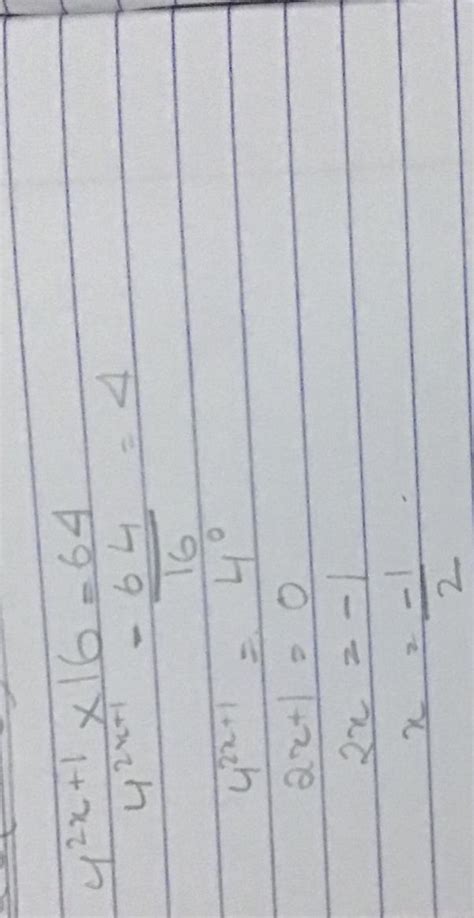 4^{2x+1} × 16 = 64
4^{2x+1} = 64/16 = 4
4^{2x+1} = 4^0
2x+1 = 0
2x = -1
x = -1/2